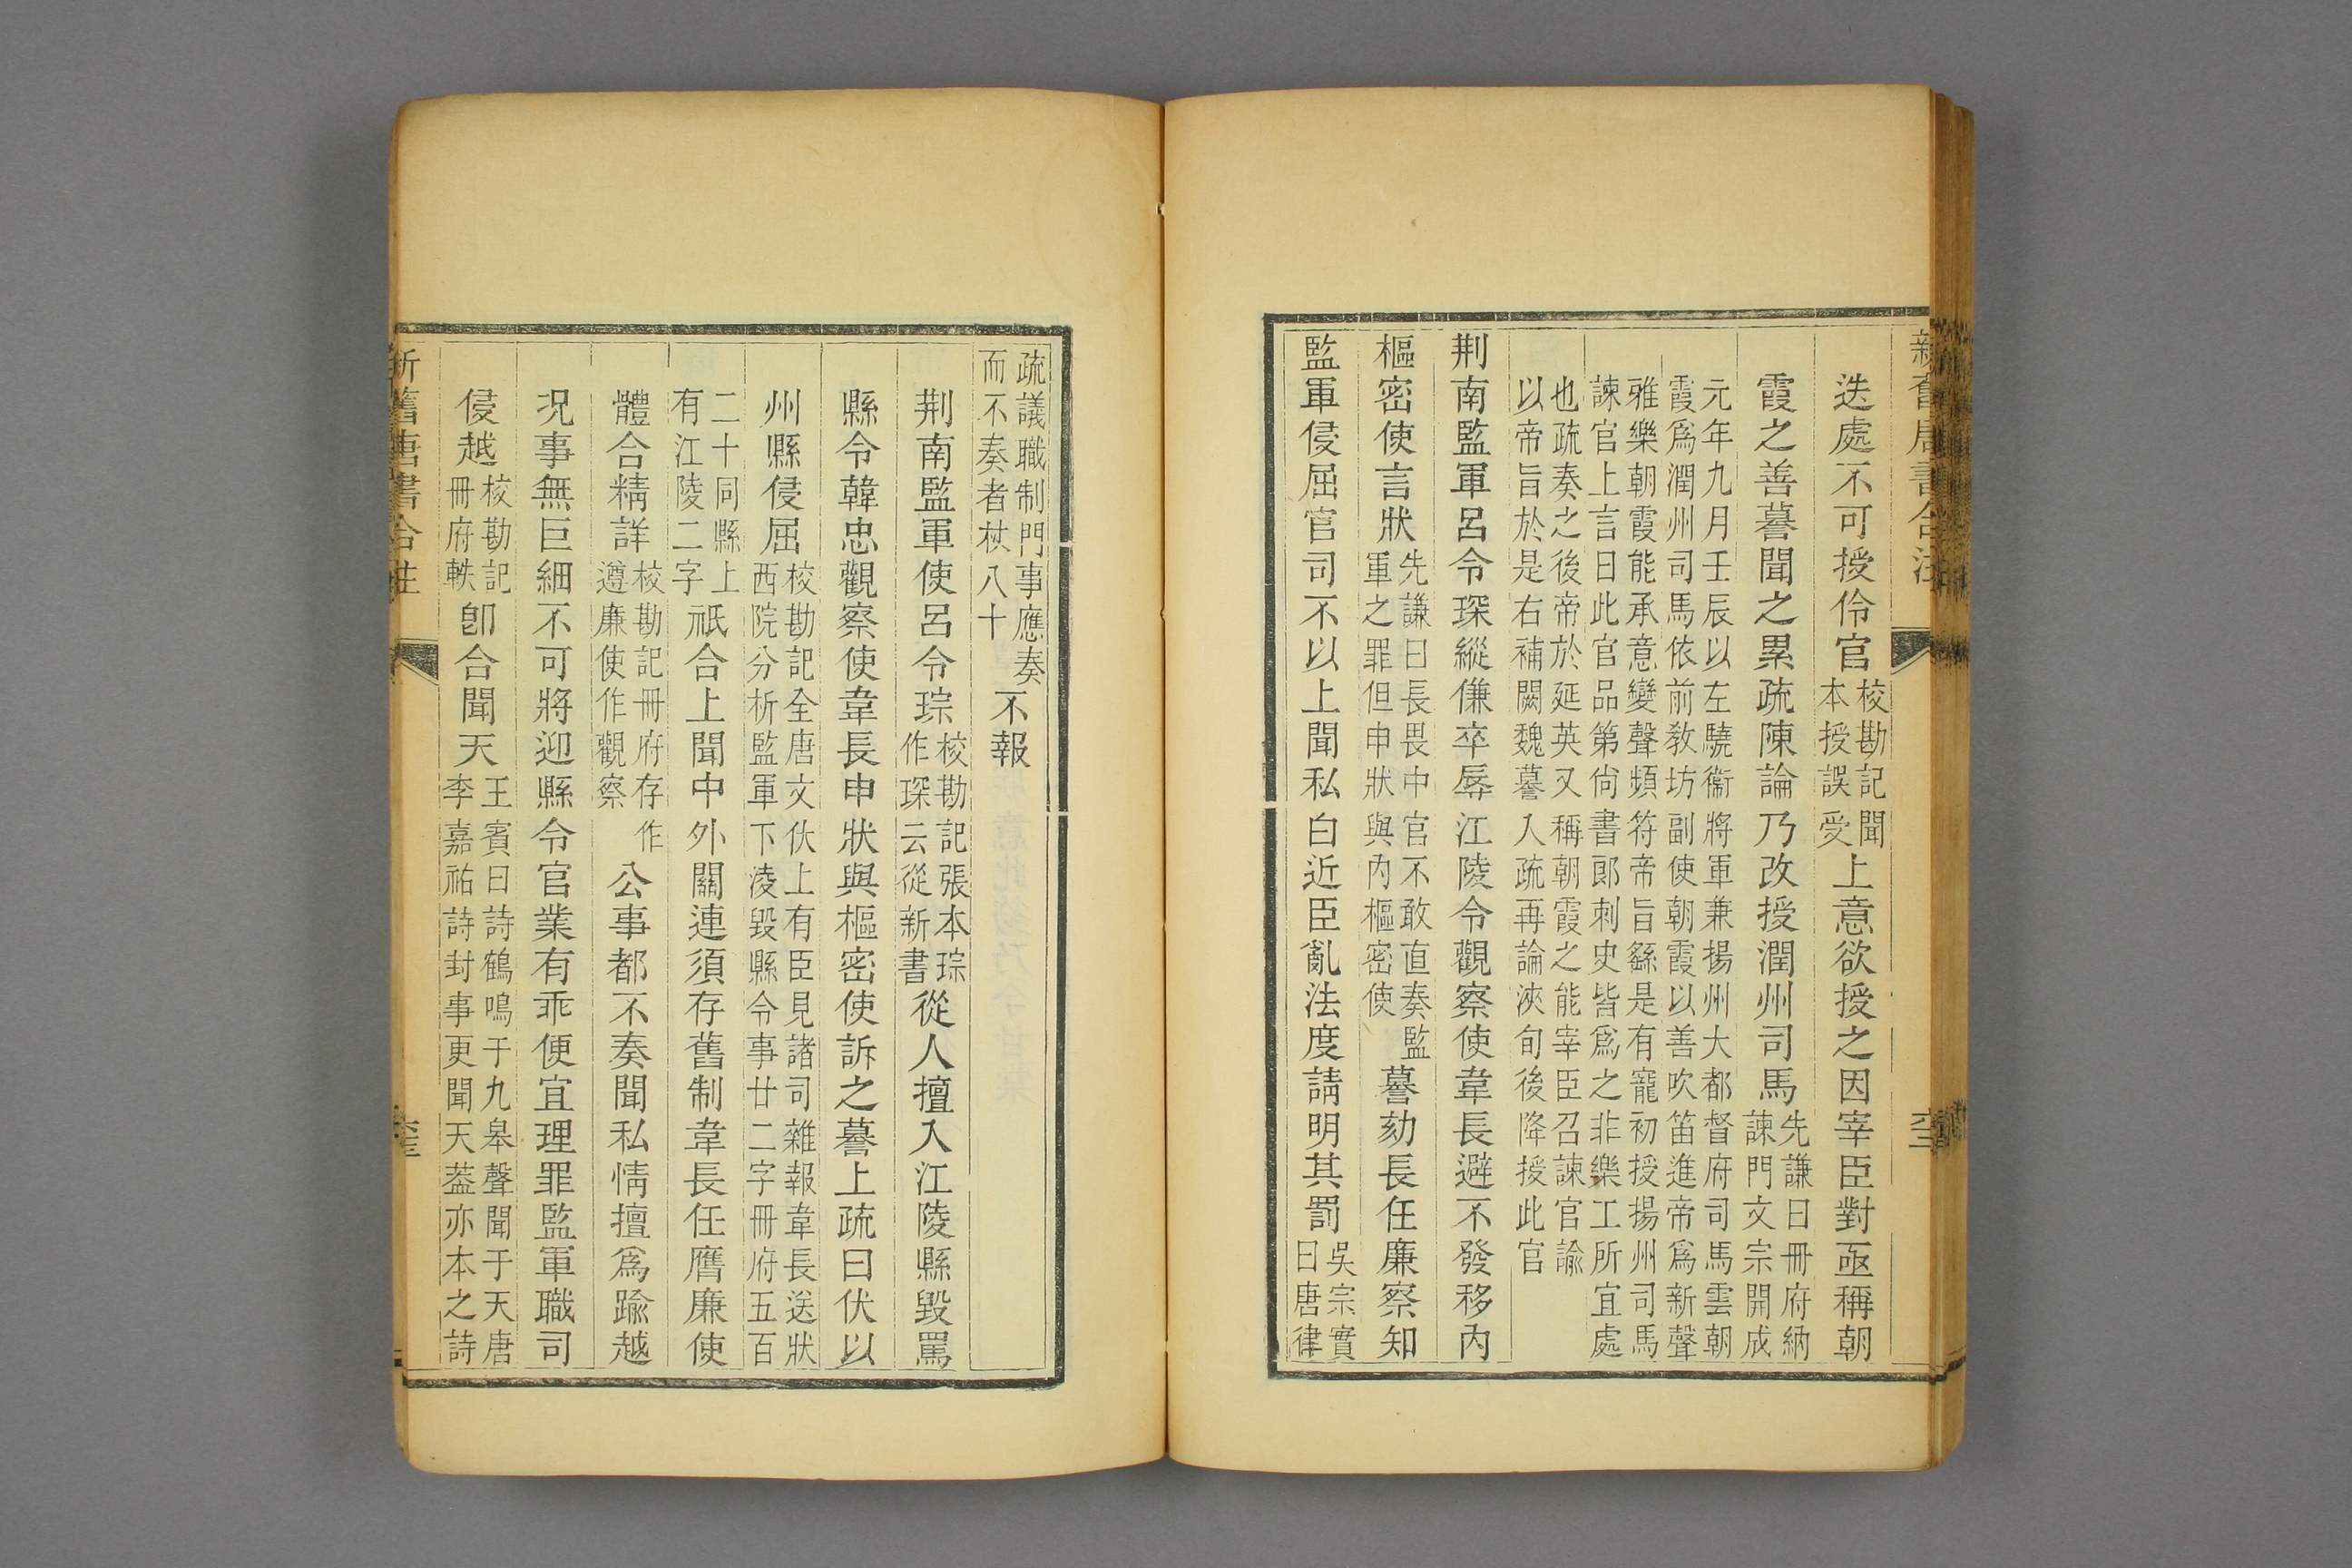 新舊唐書合注
迭處不可授伶官校勘記聞本授誤受上意欲授之因宰臣對亟稱朝
霞之善謩聞之累疏陳論乃改授潤州司馬先謙曰冊府納諫門文宗開成
元年九月壬辰以左驍衞將軍兼揚州大都督府司馬雲朝
霞爲潤州司馬依前敎坊副使朝霞以善吹笛進帝爲新聲
雅樂朝霞能承意變聲頻符帝旨繇是有寵初授揚州司馬
諫官上言曰此官品第尙書郎刺史皆爲之非樂工所宜處
也疏奏之後帝於延英又稱朝霞之能宰臣召諫官諭
以帝旨於是右補闕魏謩入疏再論浹旬後降授此官
荆南監軍呂令琛縱傔卒辱江陵令觀察使韋長避不發移內
樞密使言狀先謙曰長畏中官不敢直奏監軍之罪但申狀與內樞密使謩劾長任廉察知
監軍侵屈官司不以上聞私白近臣亂法度請明其罰吳宗實曰唐律
疏議職制門事應奏而不奏者杖八十不報
荆南監軍使呂令琮校勘記張本琮作琛云從新書從人擅入江陵縣毀罵
縣令韓忠觀察使韋長申狀與樞密使訴之謩上疏曰伏以
州縣侵屈校勘記全唐文伏上有臣見諸司雜報韋長送狀西院分析監軍下淩毀縣令事廿二字冊府五百
二十同縣上有江陵二字祇合上聞中外關連須存舊制韋長任膺廉使
體合精詳校勘記冊府存作遵廉使作觀察公事都不奏聞私情擅爲踰越
況事無巨細不可將迎縣令官業有乖便宜理罪監軍職司
侵越校勘記冊府軼卽合聞天王賓曰詩鶴鳴于九皋聲聞于天唐李嘉祐詩封事更聞天葢亦本之詩
新舊唐書合注